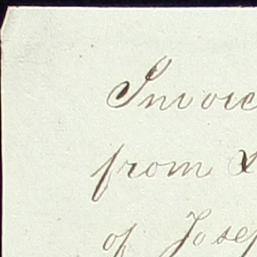 Invoic
from
of Josep